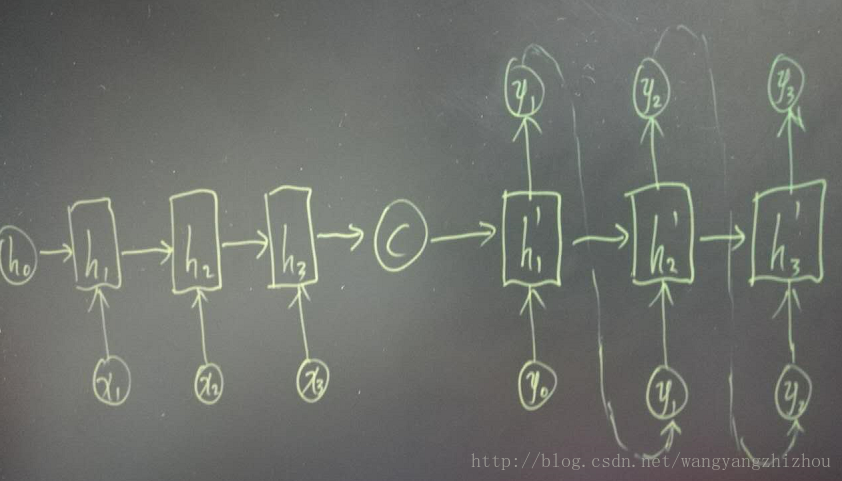 y₁ y₂ y₃
h₀ h₁ h₂ h₃ c h₁' h₂' h₃'
x₁ x₂ x₃ y₀ y₁ y₂
http://blog.csdn.net/wangyangzhizhou